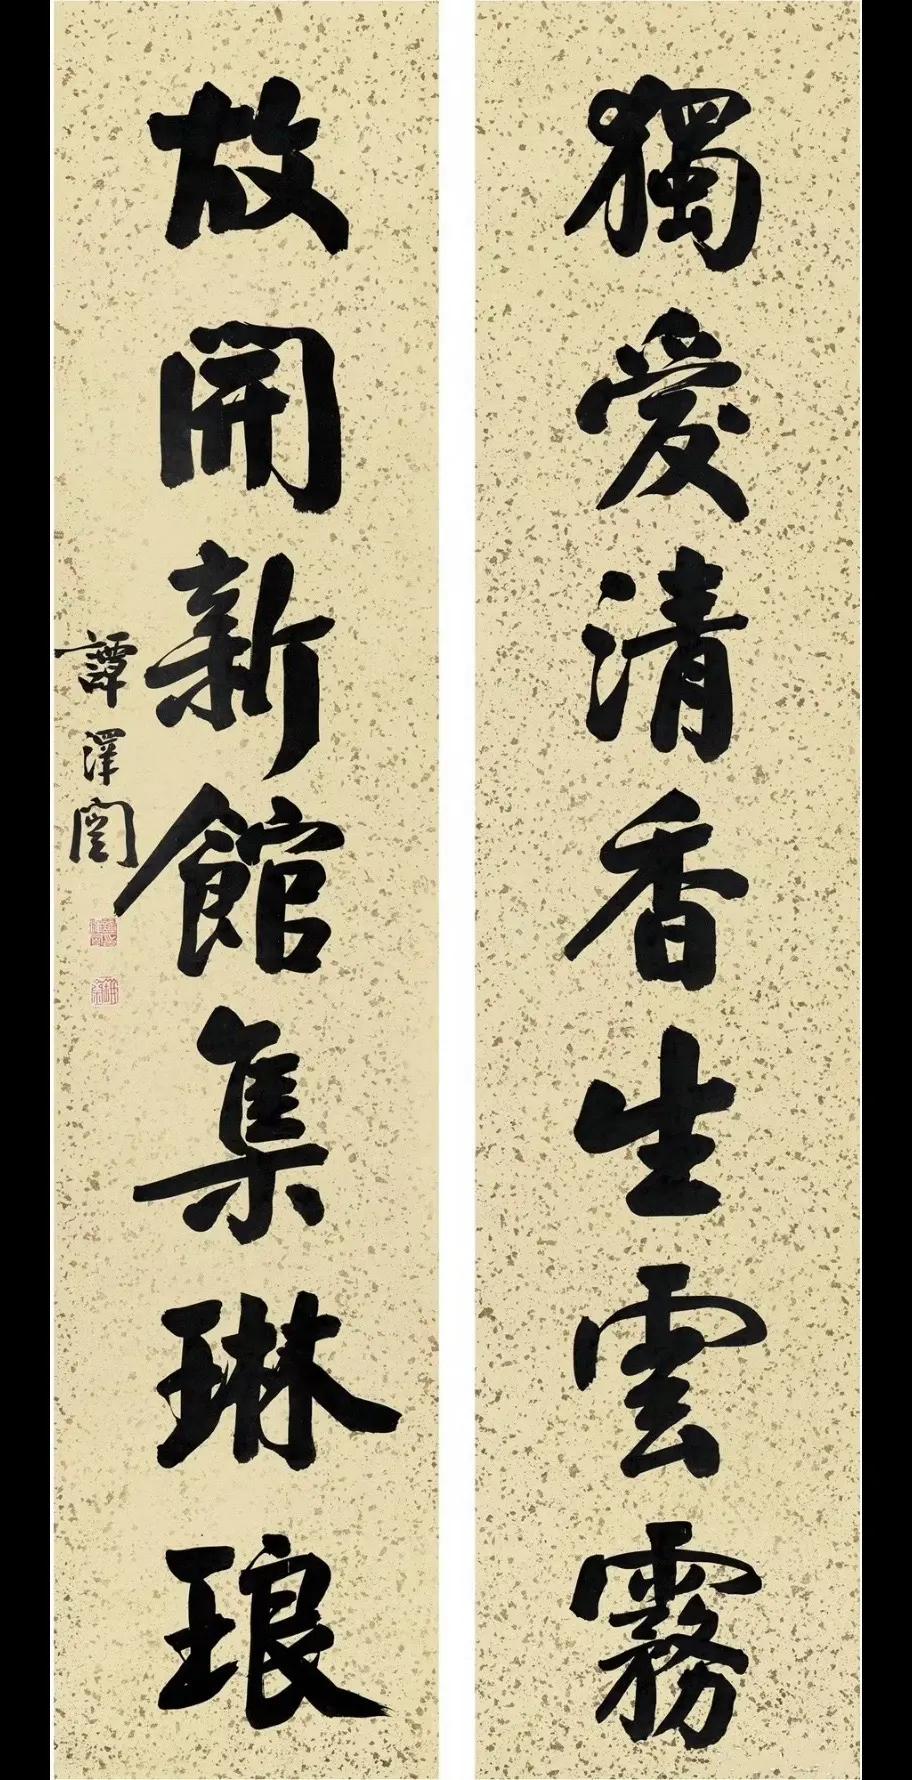 獨愛清香生雲霧
故開新館集琳琅
譚澤闓